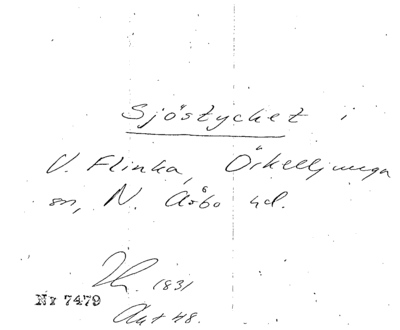 Sjöstycket i
V. Flinka, Örkelljunga
sn, N. Åsbo hd.
1831
Nr 7479
Akt 48.